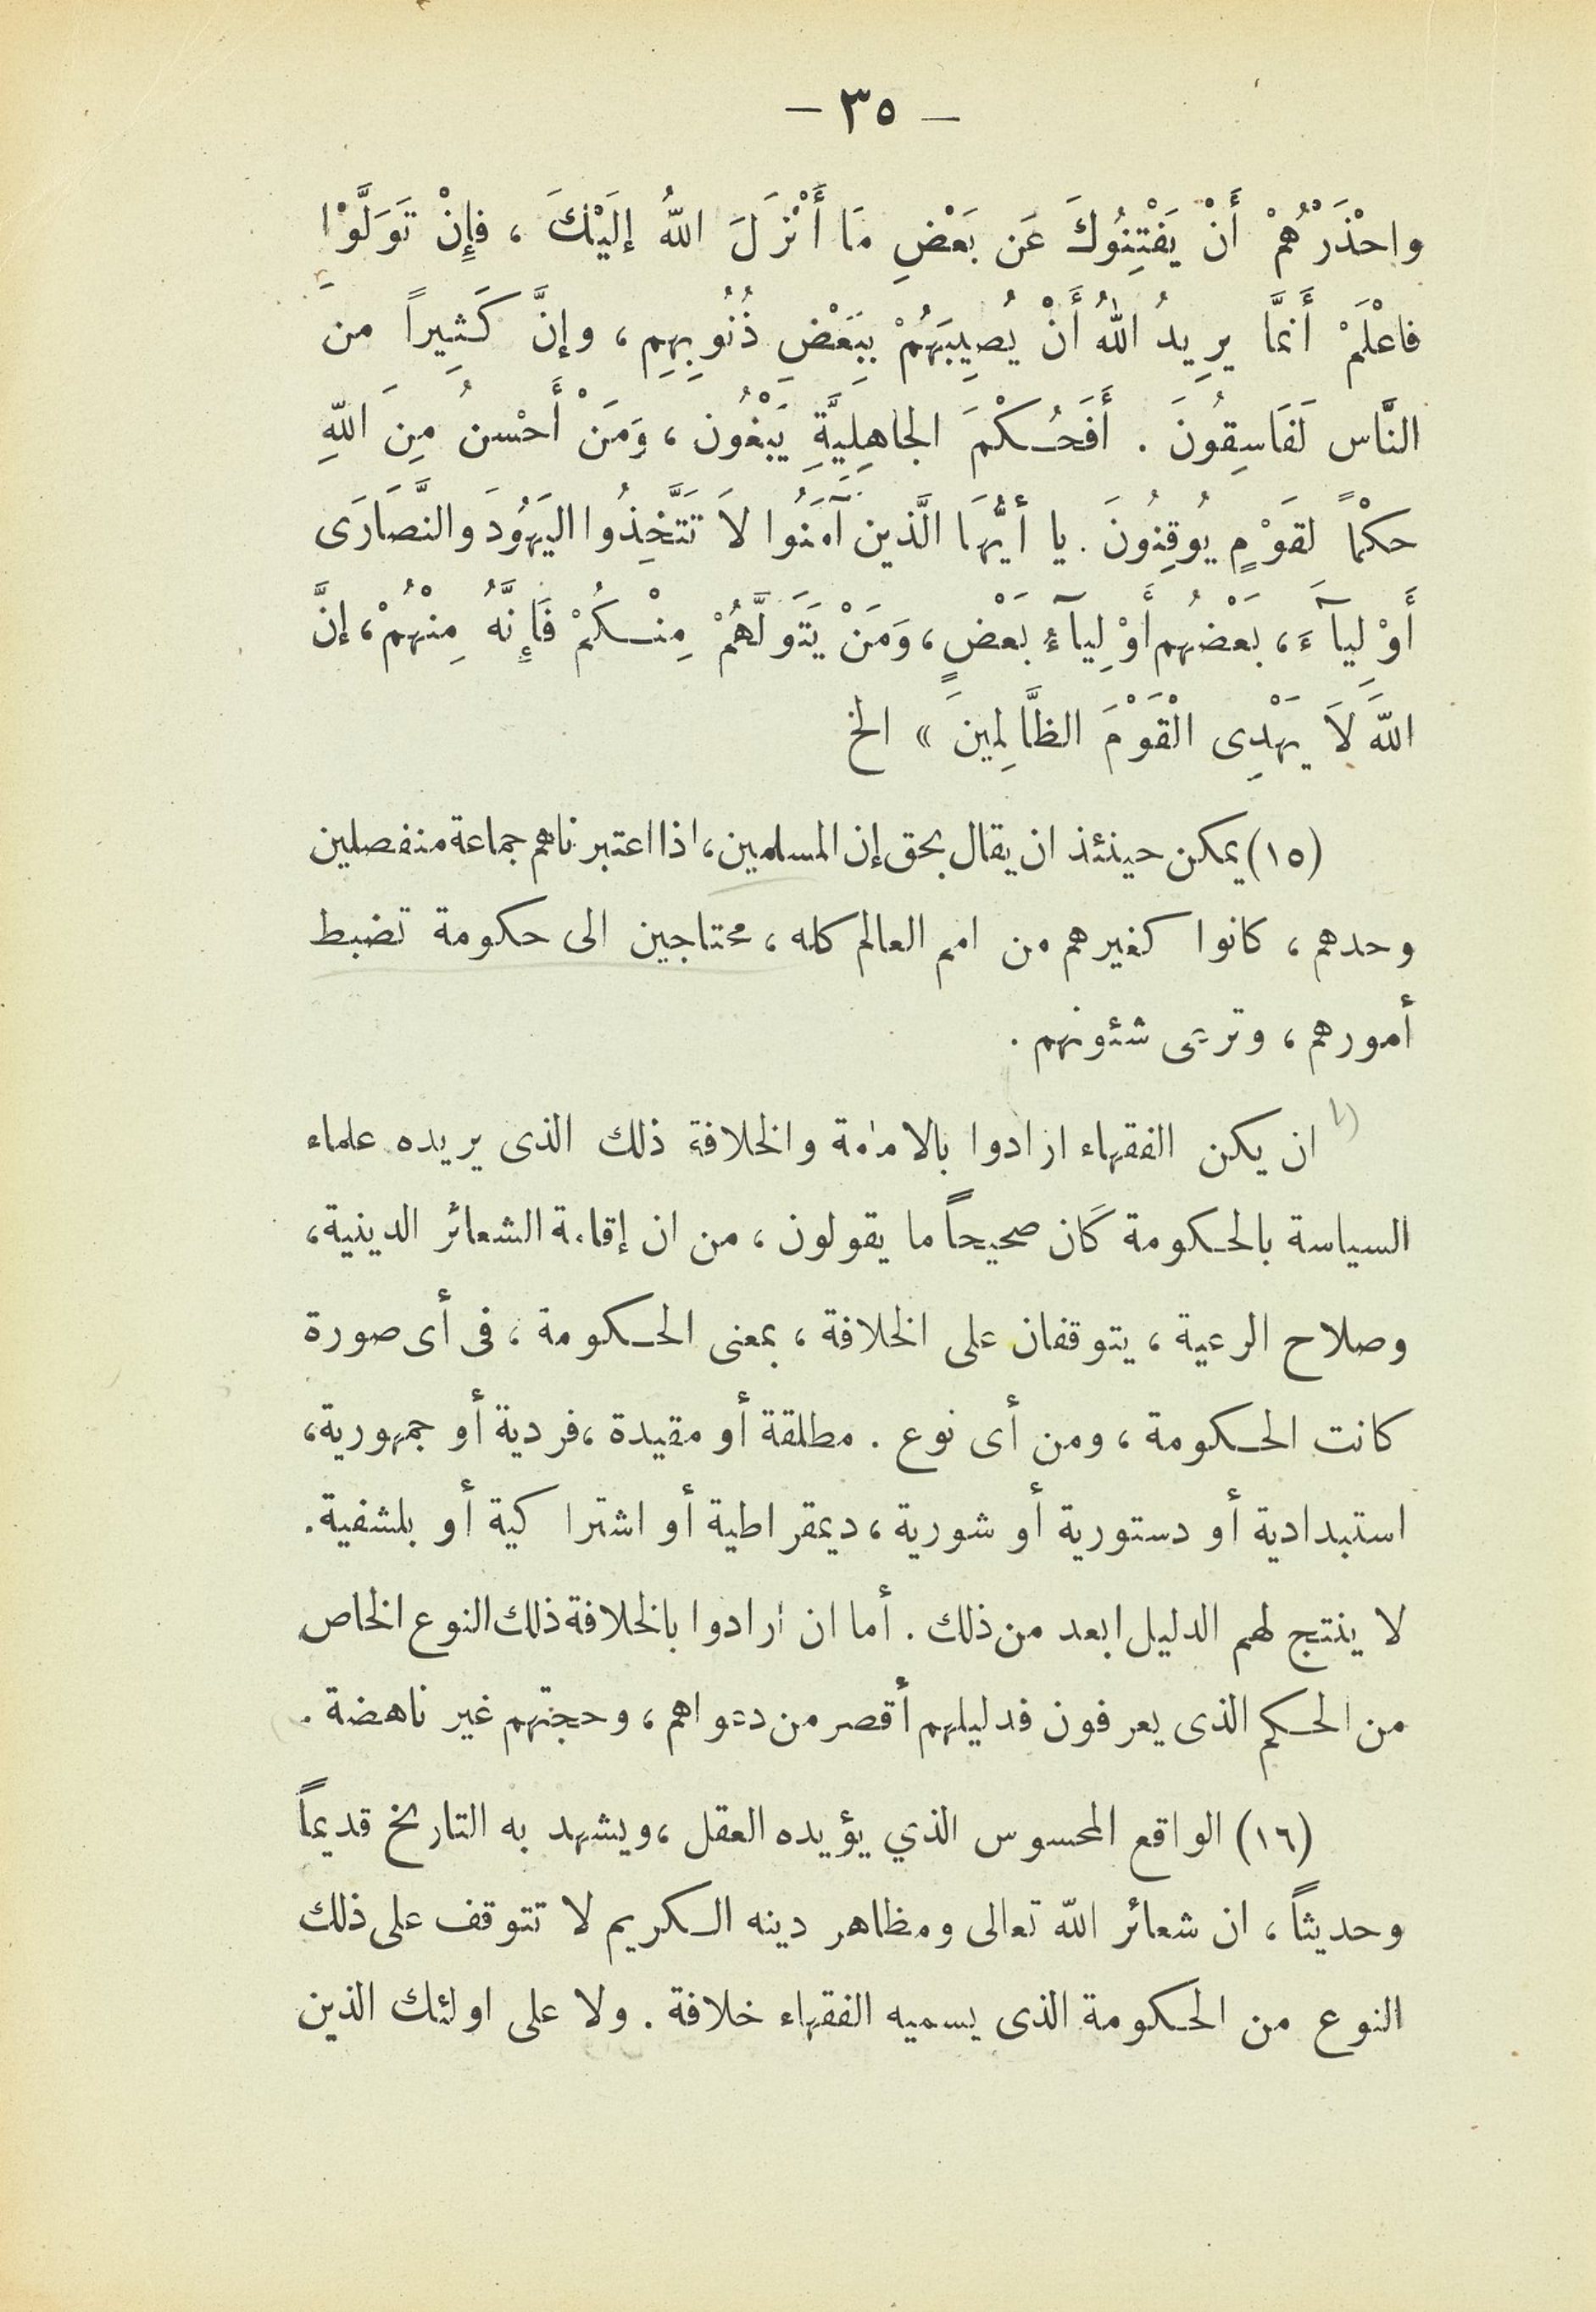 — ٣٥ —
واحْذَرْهُمْ أَنْ يَفْتِنُوكَ عَن بَعْضِ مَا أَنْزَلَ اللهُ إلَيْكَ ، فإِنْ تَوَلَّوْا
فاعْلَمْ أَنَّمَا يرِيدُ اللهُ أَنْ يُصِيبَهُمْ بِبَعْضِ ذُنُوبِهِم ، وإنَّ كَثِيراً من
النَّاس لَفَاسِقُونَ . أَفَحُكْمَ الجاهِلِيَّةِ يَبْغُون ، وَمَنْ أَحْسنُ مِنَ اللهِ
حكْماً لقَوْمٍ يُوقِنُونَ . يا أيُّهَا الَّذين آمَنُوا لاَ تَتَّخِذُوا اليَهُودَ والنَّصَارَى
أَوْلِيآءَ ، بَعْضُهم أَوْلِيآءُ بَعْضٍ ، وَمَنْ يَتَوَلَّهُمْ مِنْكُمْ فَإِنَّهُ مِنْهُمْ ، إنَّ
اللهَ لاَ يَهْدِى الْقَوْمَ الظَّالِمِينَ » الخ
(١٥) يمكن حينئذ ان يقال بحق إن المسلمين ، اذا اعتبرناهم جماعة منفصلين
وحدهم ، كانوا كغيرهم من امم العالم كله ، محتاجين الى حكومة تضبط
أمورهم ، وترعى شئونهم .
ان يكن الفقهاء ارادوا بالامامة والخلافة ذلك الذى يريده علماء
السياسة بالحكومة كان صحيحاً ما يقولون ، من ان إقامة الشعائر الدينية ،
وصلاح الرعية ، يتوقفان على الخلافة ، بمعنى الحكومة ، فى أى صورة
كانت الحكومة ، ومن أى نوع . مطلقة أو مقيدة ، فردية أو جمهورية ،
استبدادية أو دستورية أو شورية ، ديمقراطية أو اشتراكية أو بلشفية .
لا ينتج لهم الدليل ابعد من ذلك . أما ان ارادوا بالخلافة ذلك النوع الخاص
من الحكم الذى يعرفون فدليلهم أقصر من دعواهم ، وحجتهم غير ناهضة .
(١٦) الواقع المحسوس الذي يؤيده العقل ، ويشهد به التاريخ قديماً
وحديثاً ، ان شعائر الله تعالى ومظاهر دينه الكريم لا تتوقف على ذلك
النوع من الحكومة الذى يسميه الفقهاء خلافة . ولا على اولئك الذين